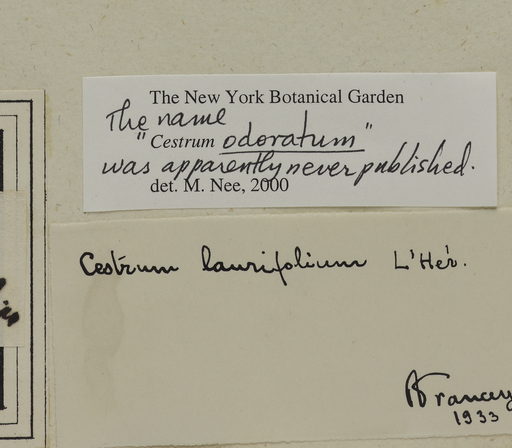 The New York Botanical Garden
The name
"Cestrum odoratum"
was apparently never published.
det. M. Nee, 2000
Cestrum laurifolium L'Hér.
1933